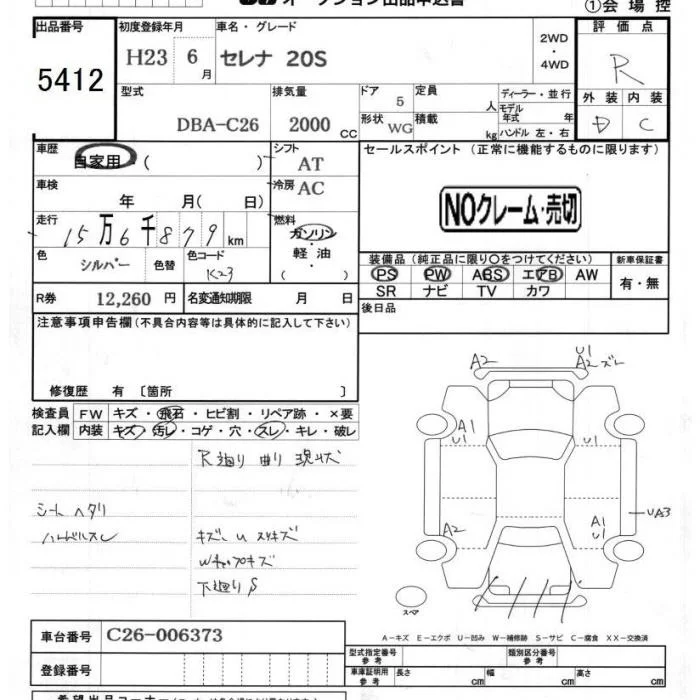 ①会場控
出品番号 初度登録年月 車名・グレード 評価点
5412 H23 6月 セレナ 20S 2WD・4WD R
型式 排気量 ドア 定員 ディーラー・並行 外装 内装
DBA-C26 2000CC 5 人 モデル年式 年 D C
形状 WG 積載 kg ハンドル 左・右
車歴 自家用・( ) シフト AT セールスポイント (正常に機能するものに限ります)
車検 年 月( 日) 冷房 AC NOクレーム・売切
走行 15万6千879km 燃料 ガソリン・軽油・( )
色 シルバー 色替 色コード K23
装備品 (純正品に限り〇をつけてください) 新車保証書
PS PW ABS エアB AW 有・無
SR ナビ TV カワ
R券 12,260円 名変通知期限 月 日
後日品
注意事項申告欄(不具合内容等は具体的に記入して下さい)
修復歴 有 〔箇所 〕
検査員記入欄 FW キズ・飛石・ヒビ割・リペア跡・×要
内装 キズ・汚レ・コゲ・穴・スレ・キレ・破レ
R廻り 曲り 現状
シート ヘタリ
ハンドルスレ キズ U スリキズ
Wキャップキズ
下廻りS
A2 U1
A2ズレ
A1
U1
UA3
A2
A1
U1
スペア
A-キズ E-エクボ U-凹み W-補修跡 S-サビ C-腐食 XX-交換済
車台番号 C26-006373
型式指定番号 参考 類別区分番号 参考
登録番号 車庫証明用 参考 長さ cm 幅 cm 高さ cm